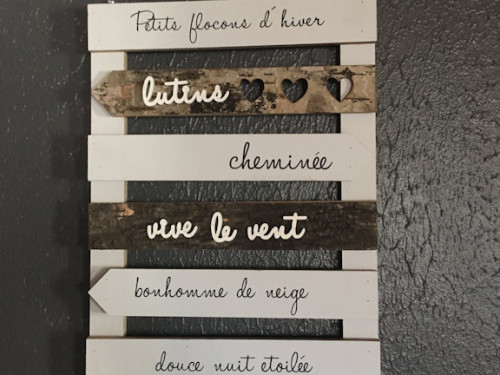 Petits flocons d'hiver
lutins
cheminée
vive le vent
bonhomme de neige
douce nuit etoilée